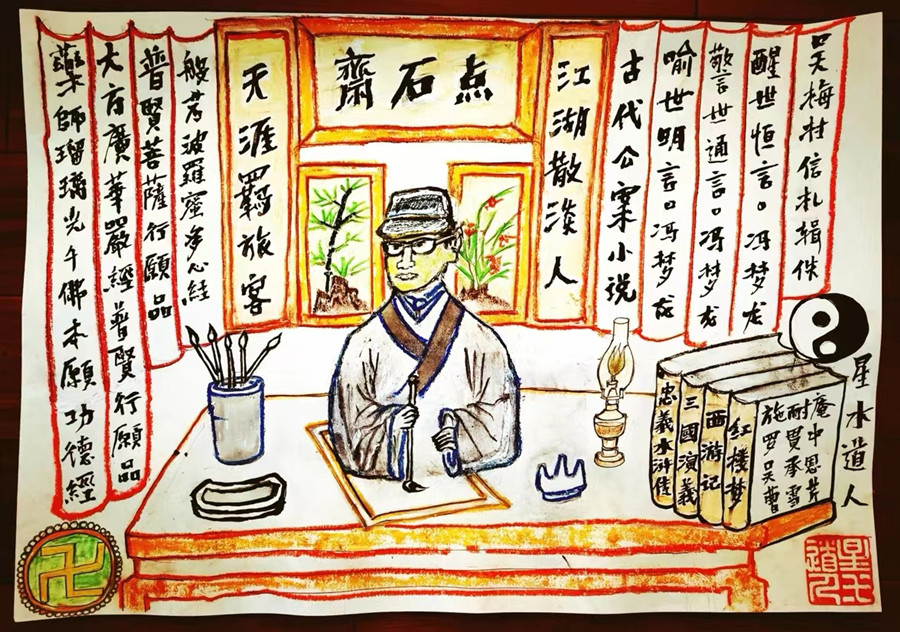 吴梅村信札辑佚
醒世恒言。冯梦龙
警世通言。冯梦龙
喻世明言。冯梦龙
古代公案小说
江湖散淡人
点石齋
天涯羁旅客
般若波羅蜜多心経
普賢菩薩行願品
大方廣華嚴經普賢行願品
藥師瑠璃光千佛本願功德經
忠義水浒传
三國演義
西游记
红樓梦
施耐庵
罗贯中
吴承恩
曹雪芹
星水道人
星水道人